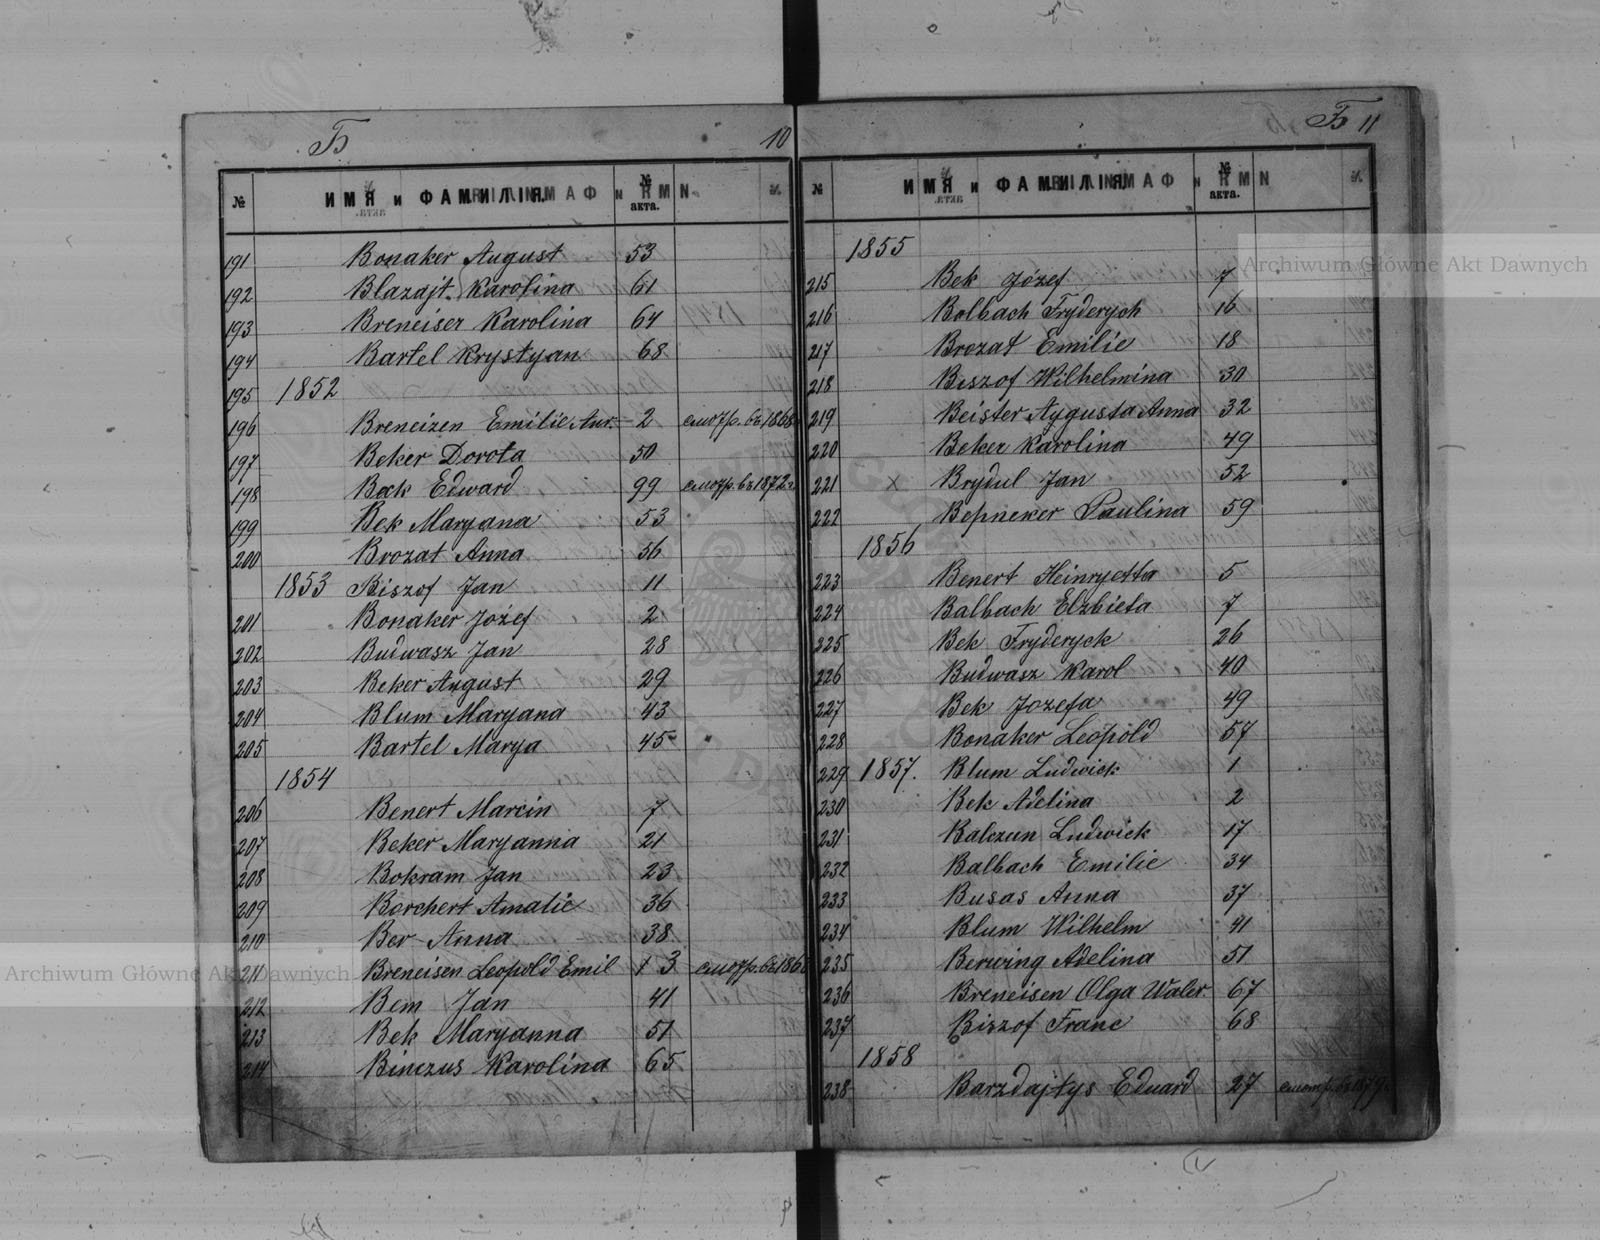 Б 10
№ ИМЯ и ФАМИЛІЯ. № акта.
191 Bonaker August 53
192 Blazajt. Karolina 61
193 Breneiser Karolina 64
194 Bartel Krystyan 68
195 1852
196 Breneizen Emilie Aur. 2 смотр. въ 1868
197 Beker Dorota 50
198 Bock Edward 99 смотр. въ 1872
199 Bek Maryana 53
200 Brozat Anna 56
1853 Biszof Jan 11
201 Bonaker Józef 2
202 Budwasz Jan 28
203 Beker August 29
204 Blum Maryana 43
205 Bartel Marya 45
1854
206 Benert Marcin 7
207 Beker Maryanna 21
208 Bokram Jan 23
209 Borchert Amalie 36
210 Ber Anna 38
211 Breneisen Leopold Emil 13 смотр. въ 186
212 Bem Jan 41
213 Bek Maryanna 51
214 Binczus Karolina 65
Б 11
№ ИМЯ и ФАМИЛІЯ № акта.
1855
215 Bek Józef 7
216 Bolbach Fryderych 16
217 Brozat Emilie 18
218 Biszof Wilhelmina 30
219 Beister Aygusta Anna 32
220 Beker Karolina 49
221 x Brydul Jan 52
222 Bepneker Paulina 59
1856
223 Benert Heinryetta 5
224 Balbach Elzbieta 7
225 Bek Fryderyck 26
226 Budwasz Karol 40
227 Bek Jozefa 49
228 Bonaker Leopold 57
229 1857. Blum Ludwick 1
230 Bek Adelina 2
231 Balczun Ludwick 17
232 Balbach Emilie 34
233 Busas Anna 37
234 Blum Wilhelm 41
235 Berwing Adelina 51
236 Breneisen Olga Waler 67
237 Biszof Franc 68
1858
238 Barzdajtys Eduard 27 смотр. въ 1879
Archiwum Główne Akt Dawnych
Archiwum Główne Akt Dawnych